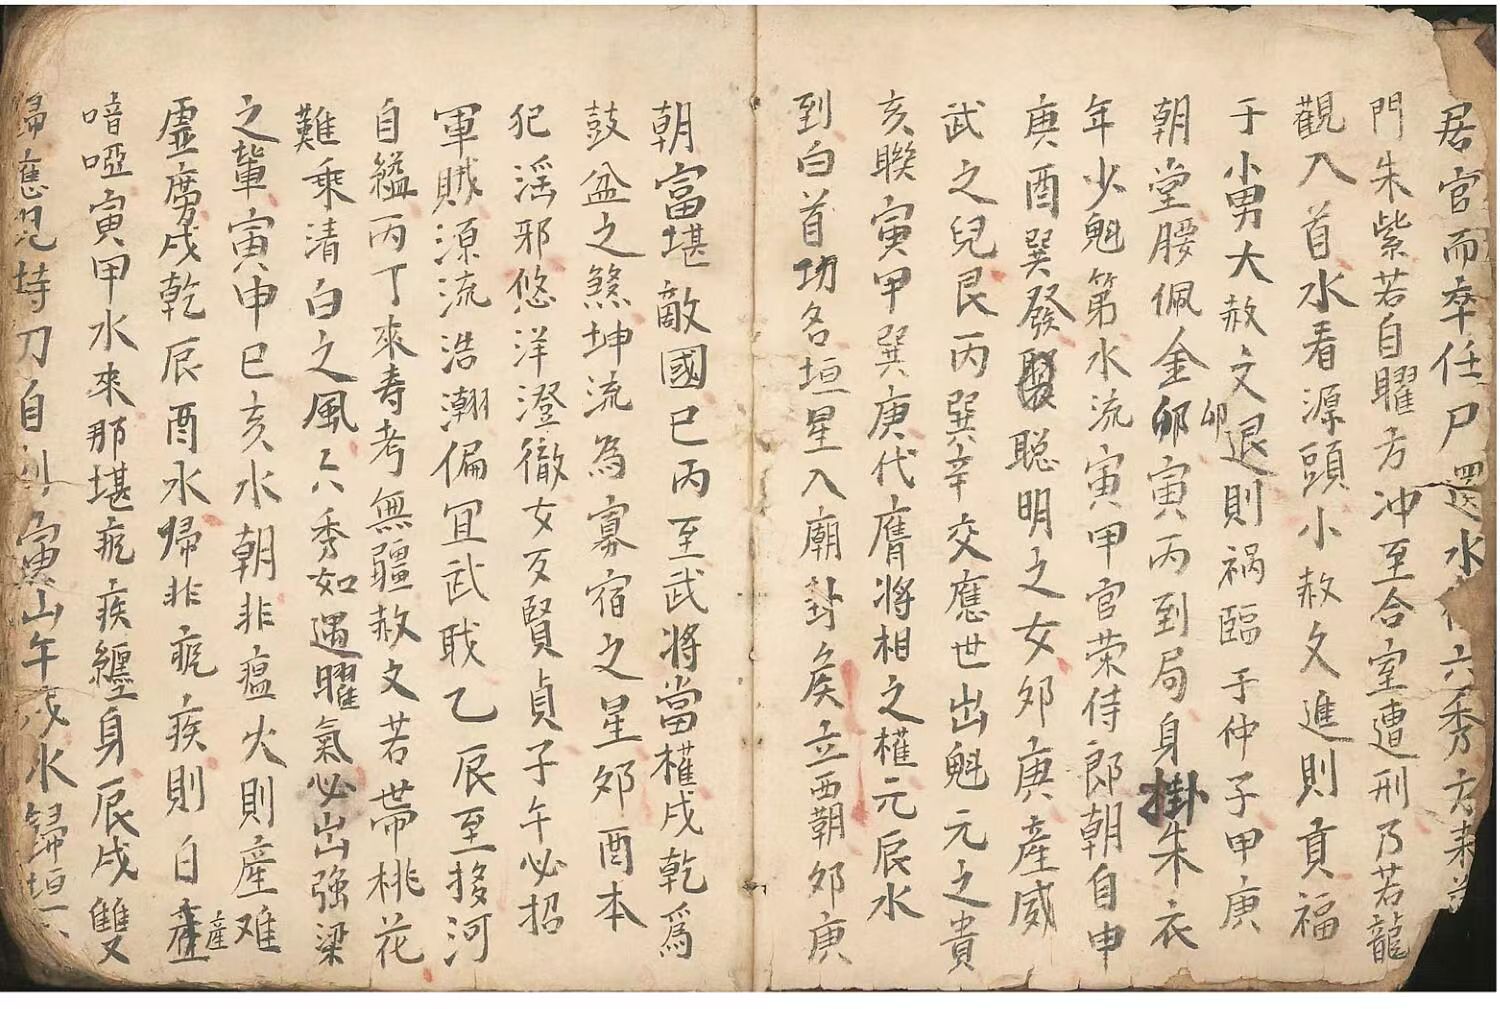 居官而卒任尸還水
門朱紫若自曜方冲至合室遭刑乃若龍
觀入首水看源頭小赦文進則貢福
于小男大赦文退則禍臨于仲子甲庚
朝堂腰佩金卯卯寅丙到局身掛朱衣
年少魁第水流寅甲官荣侍郎朝自申
庚酉巽發聰明之女郊庚產威
武之兒艮丙巽辛交應世出魁元之貴
亥聯寅甲巽庚代膺將相之權元辰水
到白首功名垣星入廟卦矦立西朝郊庚
朝富堪敵國巳丙至武將當權戌乾爲
鼓盆之煞坤流為寡宿之星郊酉本
犯淫邪悠洋澄徹女反賢貞子午必招
軍賊源流浩潮偏宜武職乙辰至拸河
自縊丙丁來寿考無疆赦文若帶桃花
難乘清白之風六秀如遇曜氣必出强梁
之輩寅申巳亥水朝非瘟火則產难
虚劳戌乾辰酉水歸非疵疾則白產
喑啞寅甲水來那堪疵疾纏身辰戌雙
歸應見持刀自寅山午戌水歸垣